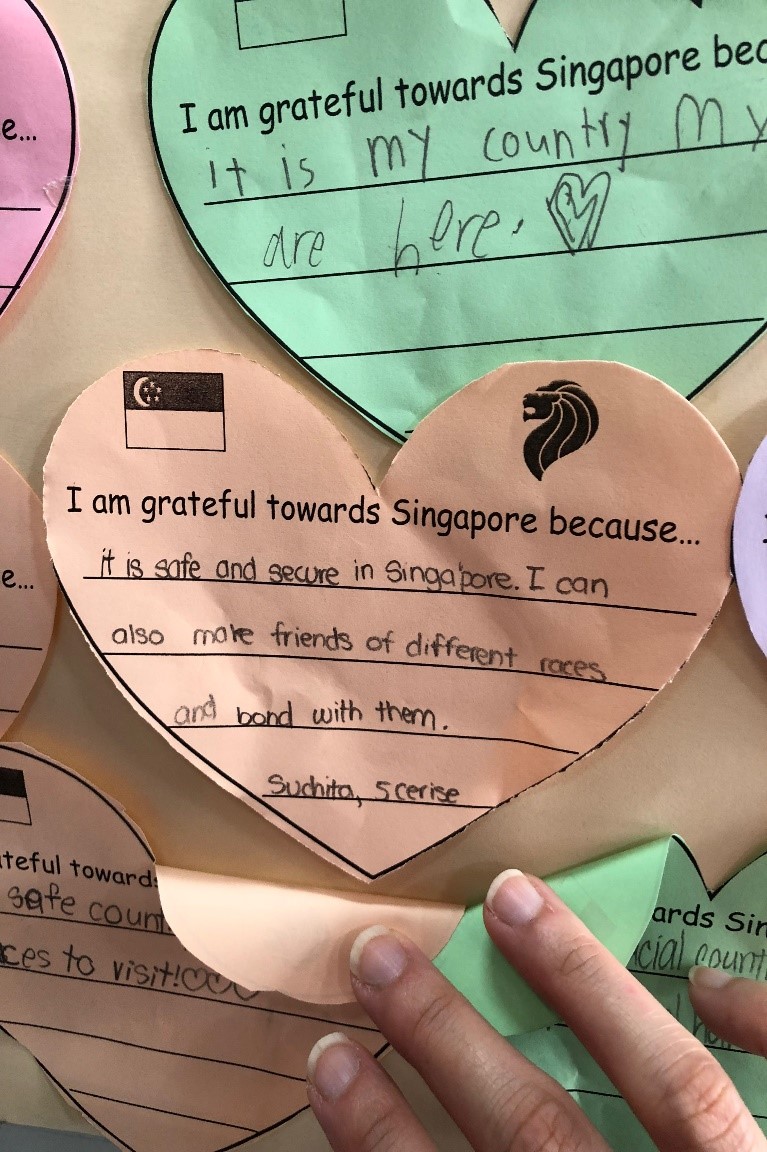 e...
I am grateful towards Singapore bec
it is my country My
are here.
I am grateful towards Singapore because...
it is safe and secure in Singapore. I can
also make friends of different races
and bond with them.
Suchita, 5 cerise
e...
teful toward
safe coun
ces to visit!
ards Sin
cial count